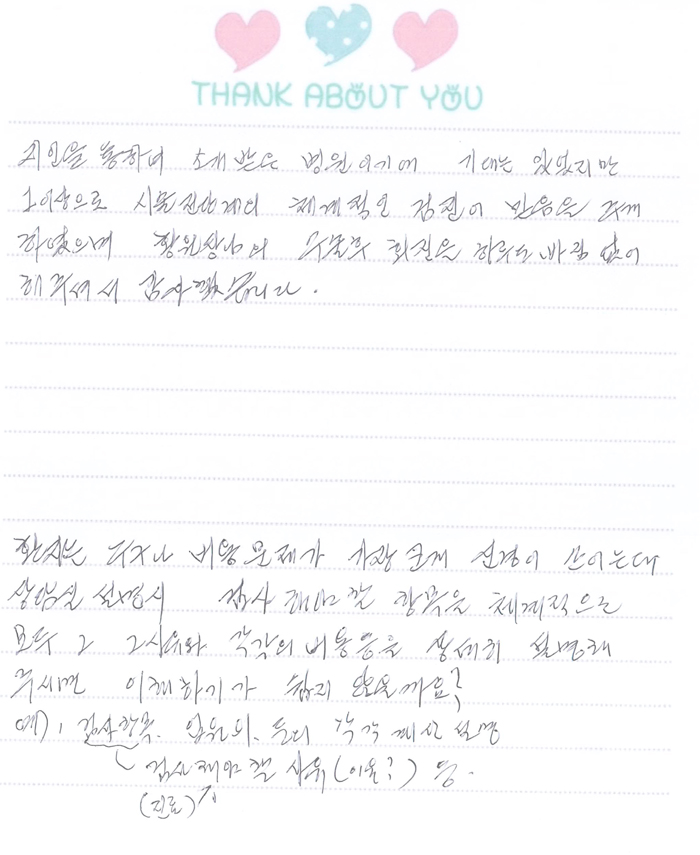 THANK ABOUT YOU
지인을 통하여 소개 받은 병원이기에 기대는 있었지만
그 이상으로 체계적인 검진이 믿음을 주게
하였으며 황원장님의 수술후 회진은 하루도 빠짐 없이
해 주셔서 감사했습니다.
환자는 누구나 비용문제가 가장 크게 신경이 쓰이는데
상담실 설명시 검사 해야 할 항목을 체계적으로
모두 그 사유와 각각의 비용등을 상세히 설명해
주시면 이해하기가 쉽지 않을까요?
예), 검사항목, 입원비, 등의 각각 계산 설명
검사해야 할 사유(이유?) 등.
(진료)